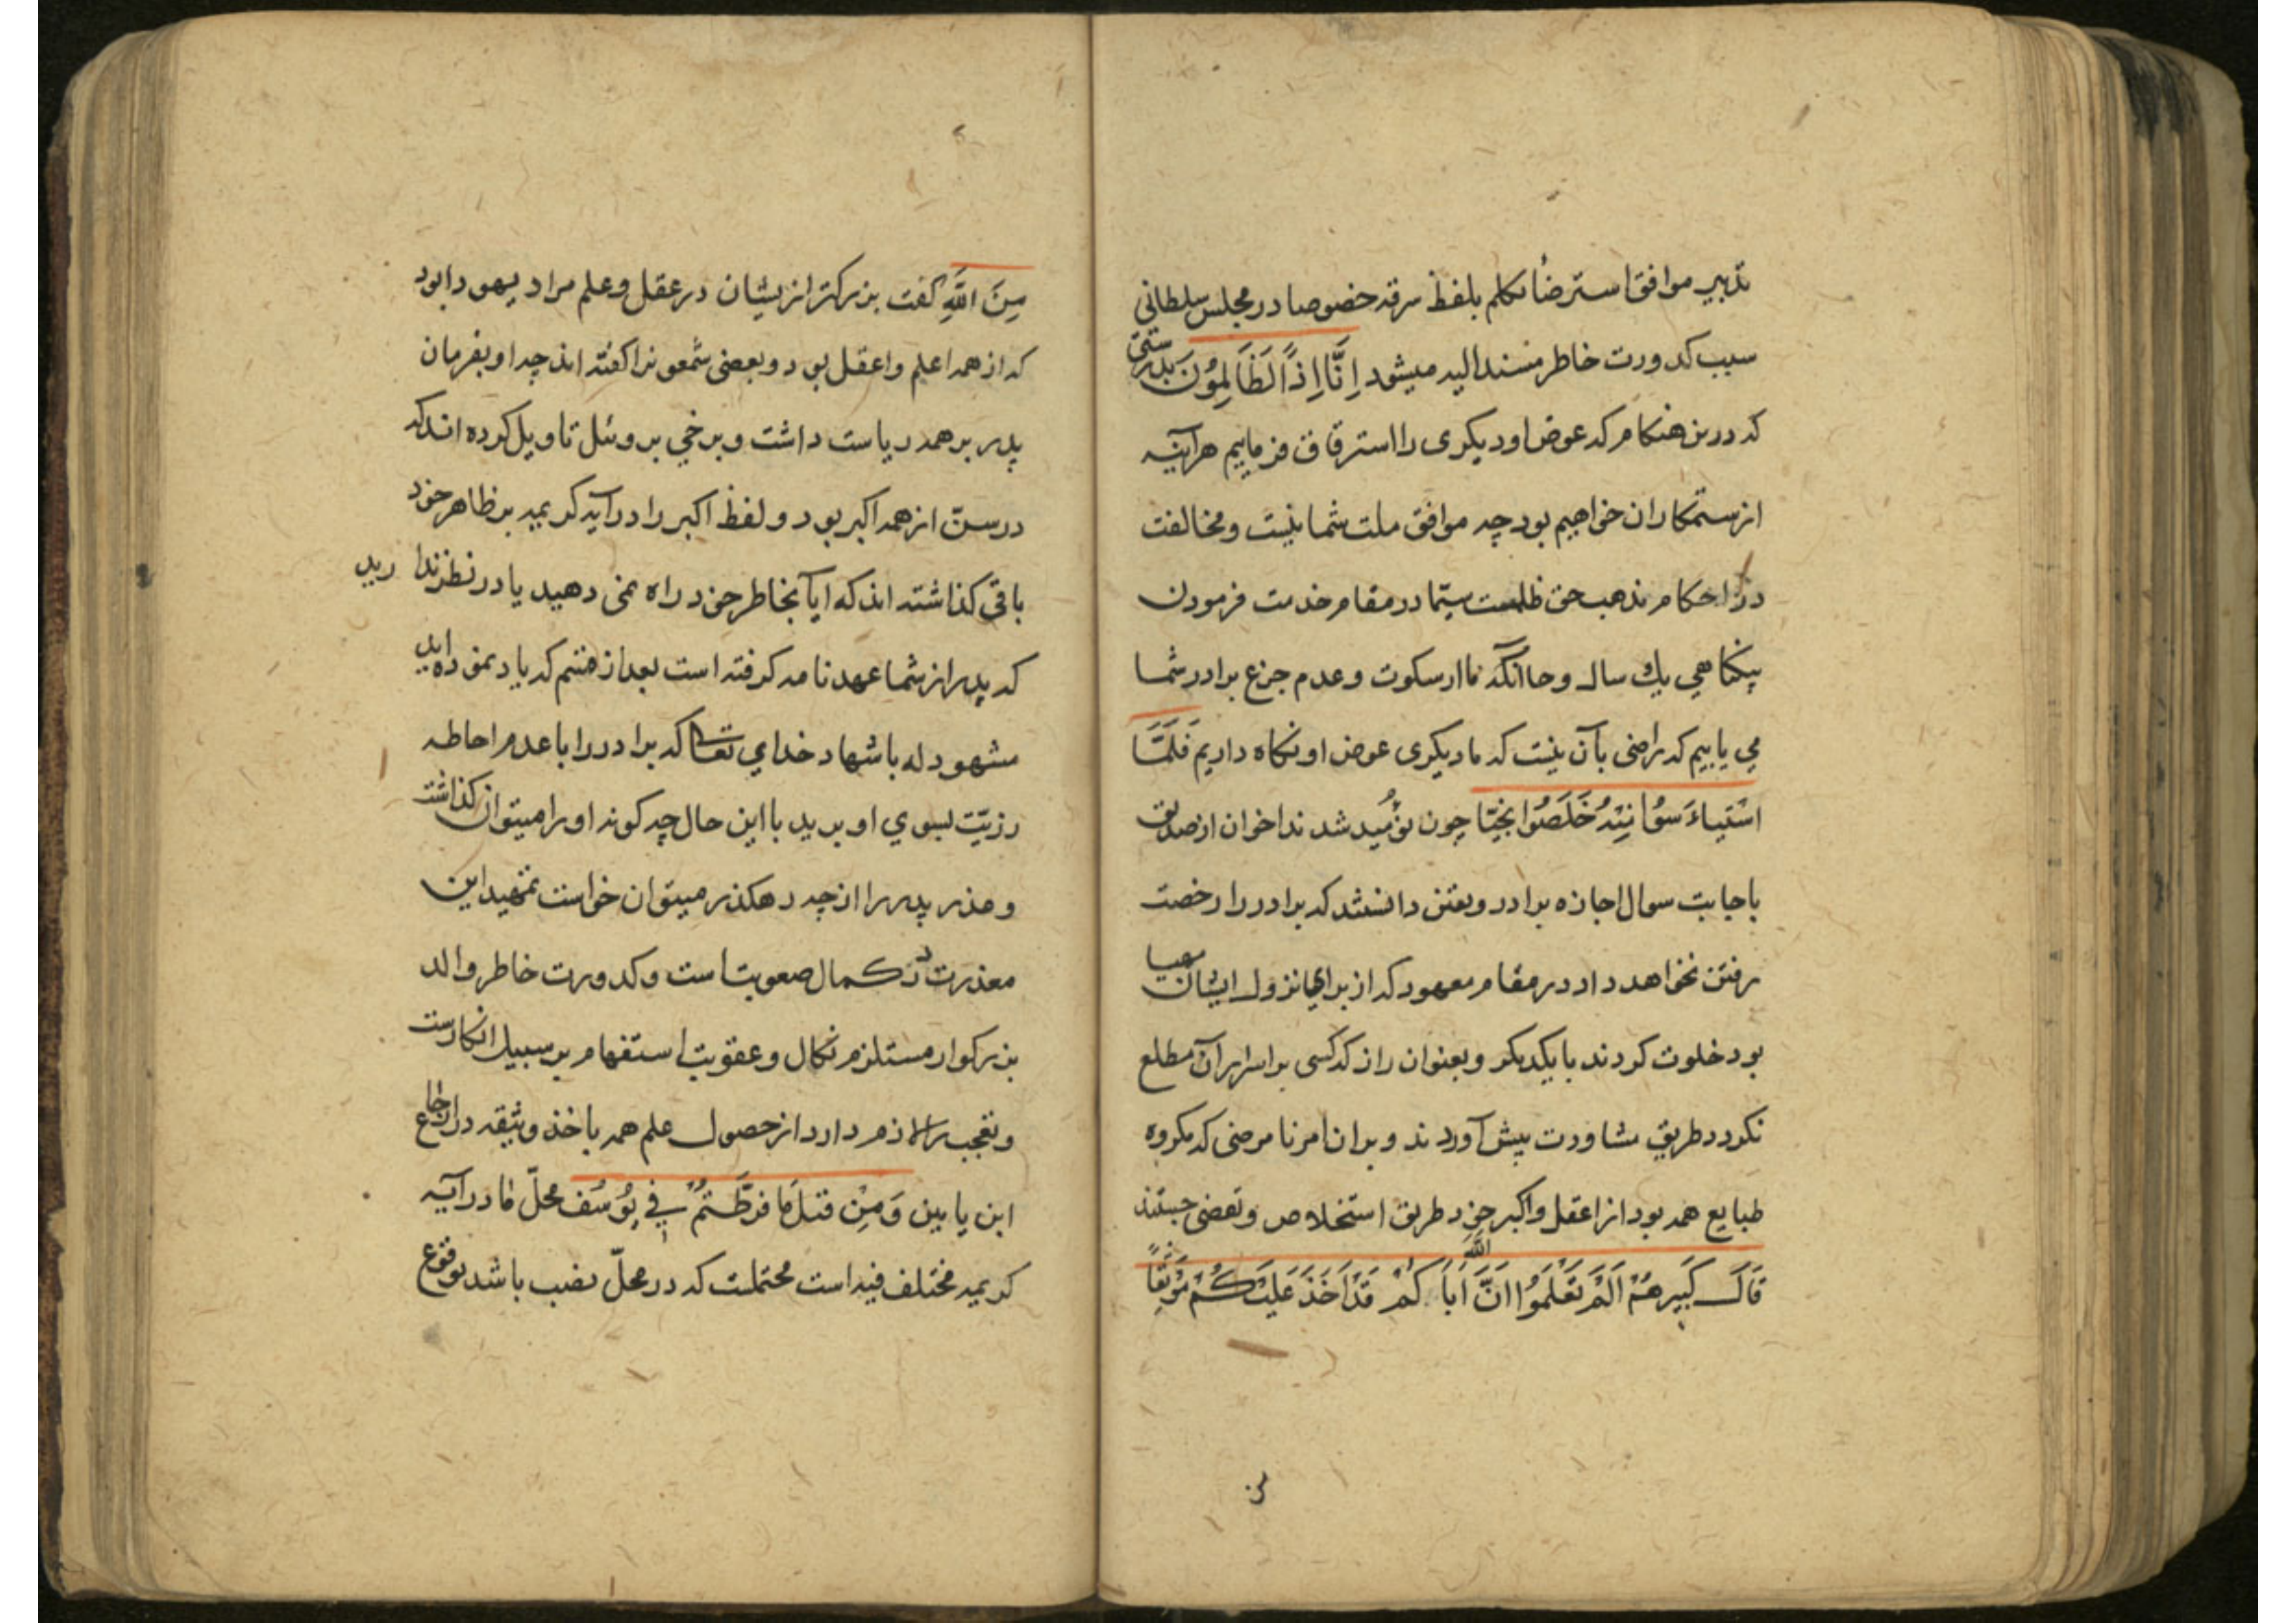 تدبیر موافق استرضا تکلم بلفظ سرقه خصوصا در مجلس سلطانی
سبب کدورت خاطر مسند الیه میشود اِنَّا اِذاً لَظَالِمُونَ بدرستی
که درین هنکام که عوض او دیکری را استرقاق فرماییم هرآینه
از ستمکاران خواهیم بود چه موافق ملت شما نیست و مخالفت
در احکام مذهب حق ظلمست سیّما در مقام خدمت فرمودن
بیکناهی یک سال و حاآنکه ما از سکوت و عدم جزع برادر شما
می یابیم که راضی بآن نیست که ما دیکری عوض او نکاه داریم فَلَمَّا
اسْتَیْاَسُوا مِنْهُ خَلَصُوا نَجِیّا چون نومید شدند اخوان از صدیق
باجابت سوال اجازه برادر و یقین دانستند که برادر را رخصت
رفتن نخواهد داد در مقام معهود که از برای نزول ایشان مهیا
بود خلوت کردند با یکدیکر و بعنوان راز که کسی بر اسرار آن مطلع
نکردد طریق مشاورت پیش آوردند و بر ان امر نامرضی که مکروه
طبایع همه بود از اعقل و اکبر خود طریق استخلاص و تفصی جستند
قَالَ کَبِیرهُمْ اَلَمْ تَعْلَمَوُا اَنَّ اَبَاکُمْ قَدْ اَخَذَ عَلَیْکُمْ مَوْثِقًا
مِنَ اللَّهِ کفت بزرکتر از یشان در عقل و علم مراد یهودا بود
که از همه اعلم و اعقل بود و بعضی شمعون را کفته اند چه او بفرمان
پدر بر همه ریاست داشت و برخی بر وئیل تاویل کرده اند که
در سنّ از همه اکبر بود و لفظ اکبر را در آیه کریمه بر ظاهر خود
باقی کذاشته اند که ایا بخاطر خود راه نمی دهید یا در نظر ندارید
که پدر از شما عهد نامه کرفته است بعد از قسم که یاد نموده اید
مشهود له باشهاد خدای تعالی که برادر را با عدم احاطه
رزیّت بسوی او برید با این حال چه کونه او را میتوان کذاشت
و عذر پدر را از چه رهکذر میتوان خواست تمهید این
معذرت در کمال صعوبتاست و کدورت خاطر والد
بزرکوار مستلزم نکال و عقوبت استفهام بر سبیل انکارست
و تعجب را لازم دارد از حصول علم همه باخذ وثیقه در ارجاع
ابن یامین وَ مِنْ قبْلُ مَا فرَّطْتُمْ فِی یُوسُفَ محلّ ما در آیه
کریمه مختلف فیه است محتملست که در محلّ نصب باشد بوقوع